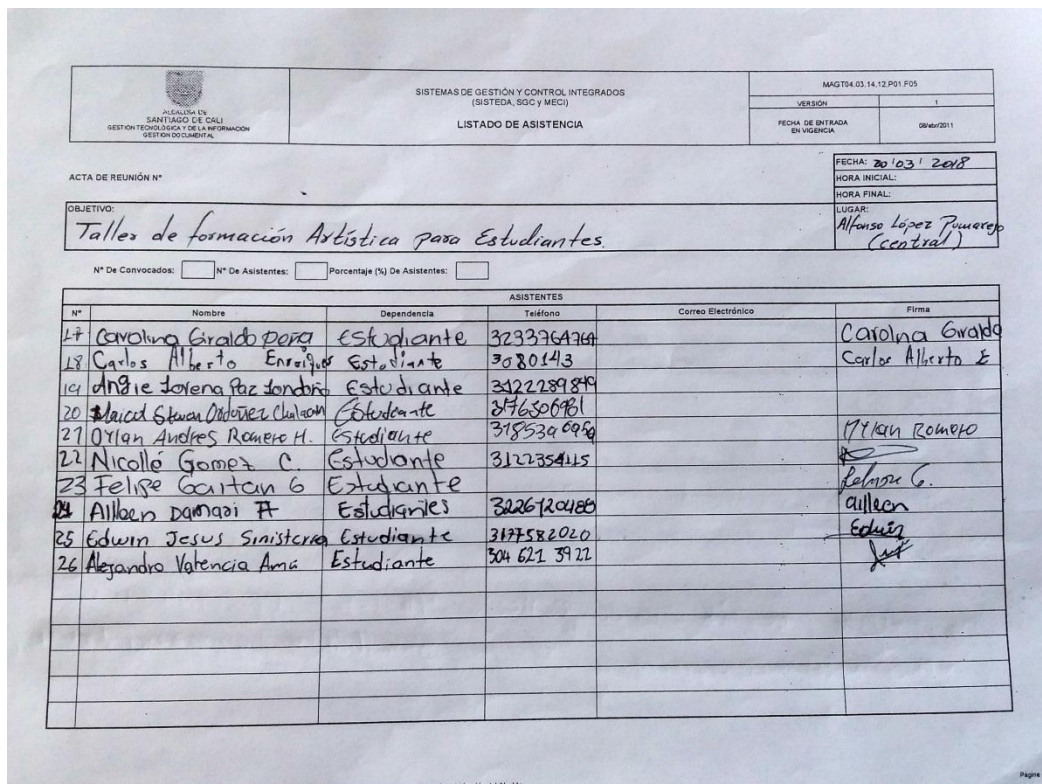 ALCALDÍA DE
SANTIAGO DE CALI
GESTIÓN TECNOLÓGICA Y DE LA INFORMACIÓN
GESTIÓN DOCUMENTAL
SISTEMAS DE GESTIÓN Y CONTROL INTEGRADOS
(SISTEDA, SGC y MECI)
LISTADO DE ASISTENCIA
MAGT04.03.14.12.P01.F05
VERSIÓN 1
FECHA DE ENTRADA EN VIGENCIA 08/abr/2011
ACTA DE REUNIÓN N°
FECHA: 20/03/2018
HORA INICIAL:
HORA FINAL:
LUGAR:
Alfonso López Pumarejo
(central)
OBJETIVO:
Taller de formación Artística para Estudiantes.
N° De Convocados: N° De Asistentes: Porcentaje (%) De Asistentes:
ASISTENTES
N° Nombre Dependencia Teléfono Correo Electrónico Firma
17 Carolina Giraldo peña Estudiante 3233764764 Carolina Giraldo
18 Carlos Alberto Enrriques Estudiante 3080143 Carlos Alberto E
19 Angie Lorena Paz Londoño Estudiante 3122289849
20 Steven Ordoñez Estudiante
21 Orlan Andres Romero H. Estudiante Romero
22 Nicolle Gomez C. Estudiante 3122354115
23 Felipe Gaitan G Estudiante
24 Ailleen Damari A Estudiantes 3226720486 ailleen
25 Edwin Jesus Sinisterra Estudiante 3177582020 Edwin
26 Alejandra Valencia Ama Estudiante 304 621 3922
Página